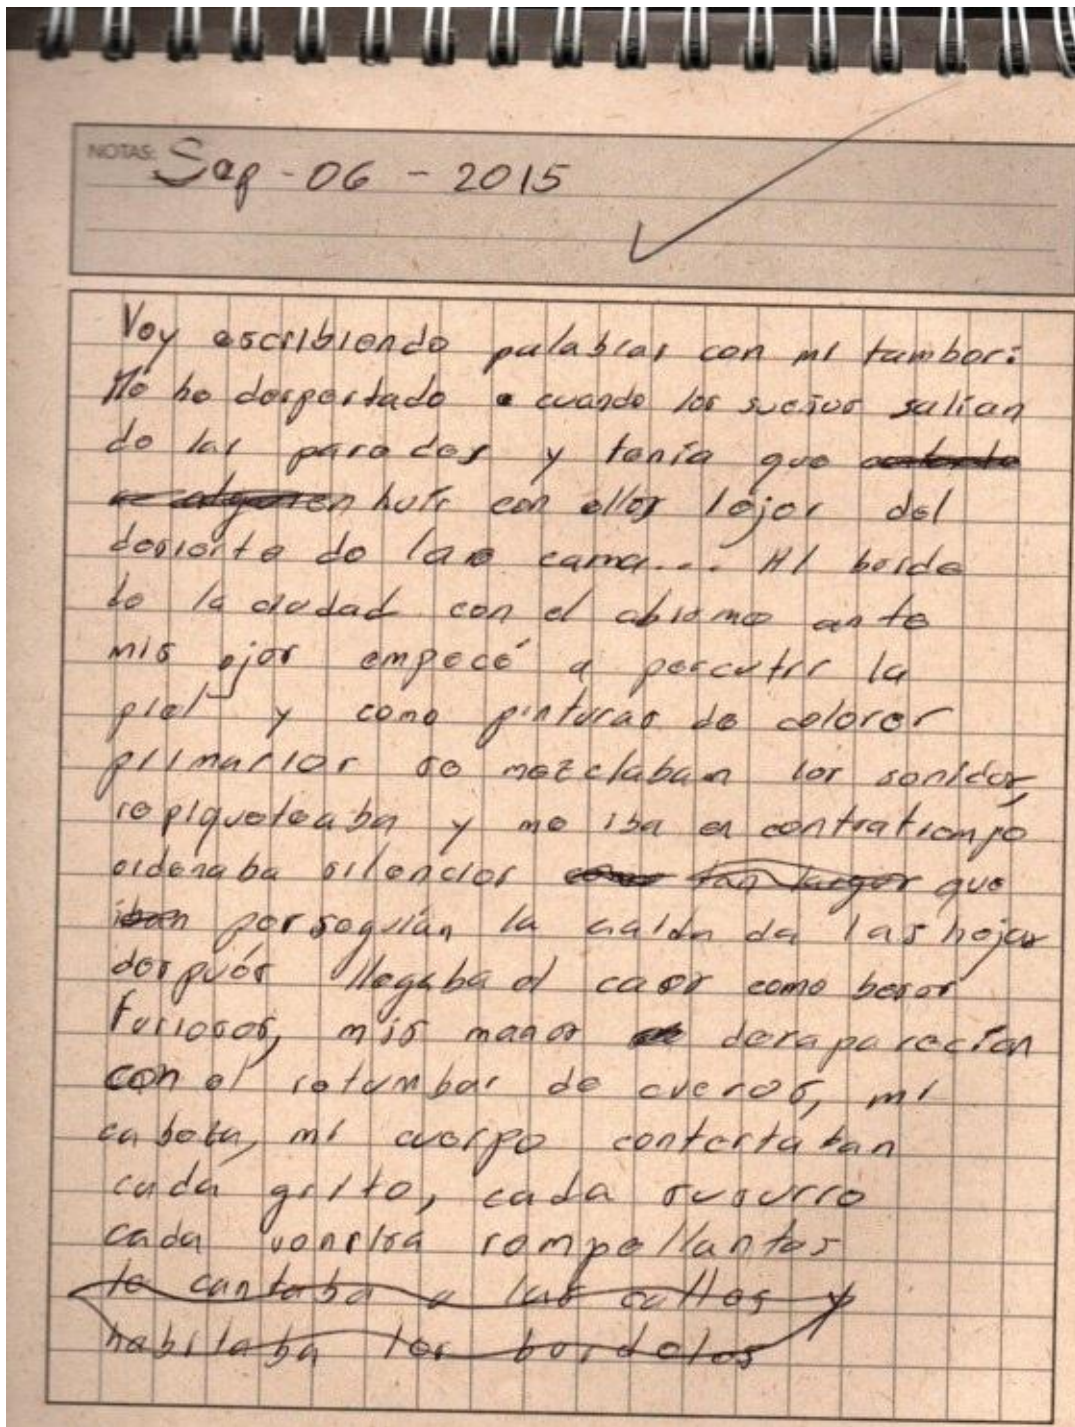 NOTAS: Sep - 06 - 2015
Voy escribiendo palabras con mi tambor:
Me he despertado cuando los sueños salían
de las paredes y tenía que
huir con ellos lejos del
desierto de la cama... Al borde
de la ciudad con el abismo ante
mis ojos empecé a percutir la
piel y como pinturas de colores
primarios se mezclaban los sonidos,
repiqueteaba y me iba en contratiempo
ordenaba silencios tan largos que
iban perseguían la caída de las hojas
después llegaba el caos como besos
furiosos, mis manos desaparecían
con el retumbar de cueros, mi
cabeza, mi cuerpo contestaban
cada grito, cada susurro
cada sonrisa rompellantos
le cantaba a las calles y
habitaba los bordeles